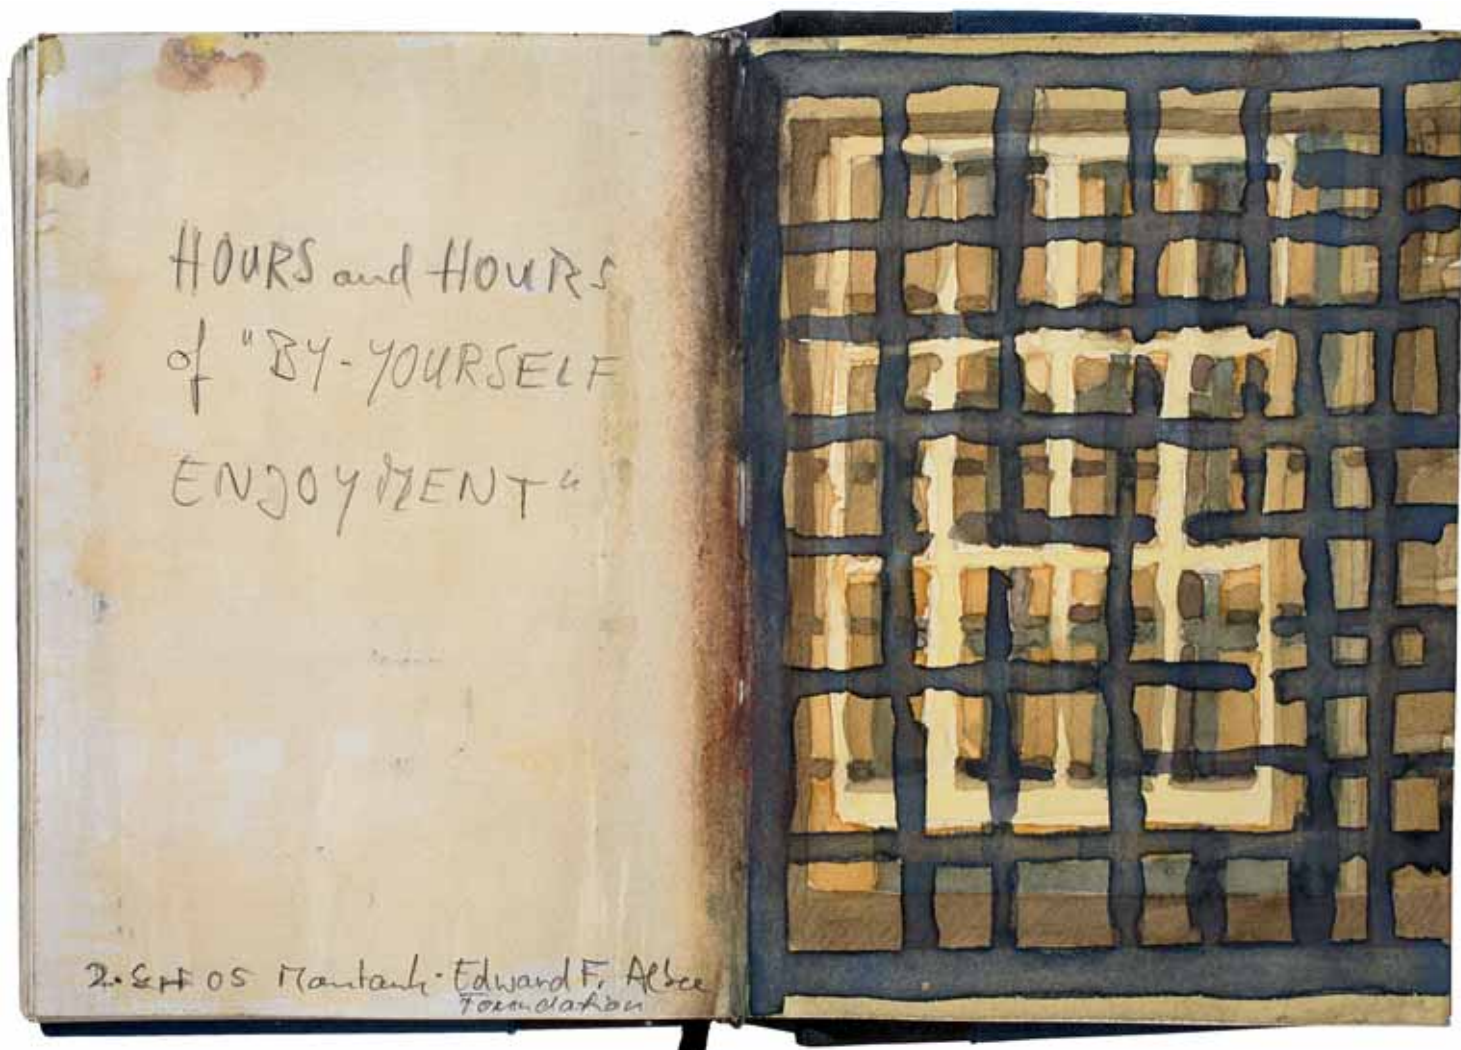 HOURS and HOURS
of "BY-YOURSELF
ENJOYMENT"
2. Sept 05 Montauk · Edward F. Albee
Foundation